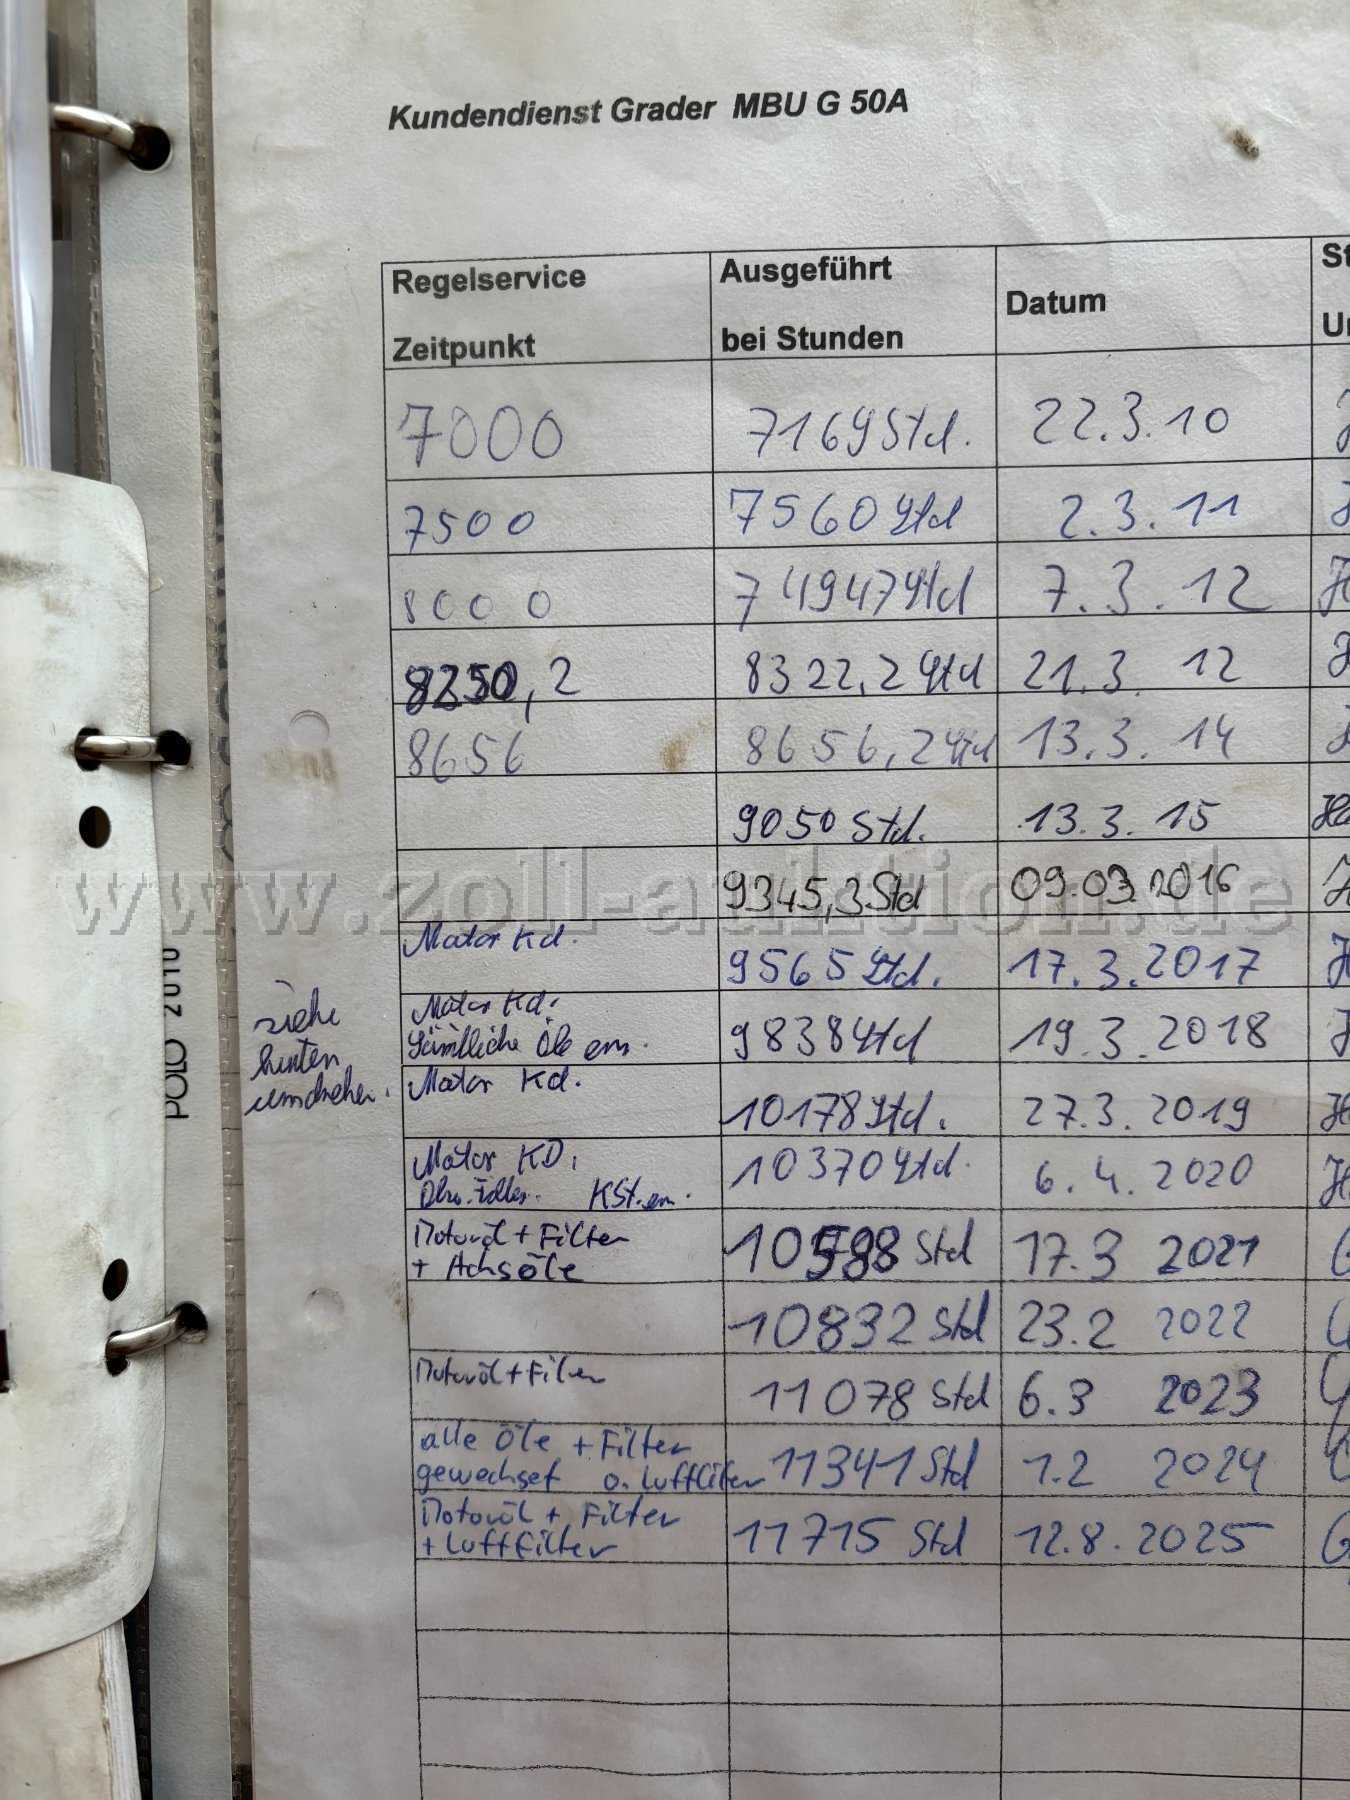 Kundendienst Grader MBU G 50A
Regelservice Zeitpunkt Ausgeführt bei Stunden Datum St Un
7000 7169 Std. 22.3.10
7500 7560 Std 2.3.11
8000 74947 Std 7.3.12
8250,2 8322,2 Std 21.3.12
8656 8656,2 Std 13.3.14
9050 Std. 13.3.15
9345,3 Std 09.03.2016
www.zoll-auktion.de
Motor Kd. 9565 Std. 17.3.2017
Motor Kd.
Sämtliche Öle ern. 9838 Std 19.3.2018
siehe
hinten
umdrehen.
Motor Kd. 10178 Std. 27.3.2019
Motor KD. 10370 Std. 6.4.2020
KSt. ern.
Motoröl + Filter
+ Achsöle 10598 Std 17.3 2021
10832 Std 23.2 2022
Motoröl + Filter 11078 Std 6.3 2023
alle Öle + Filter
gewechselt o. Luftfilter 11341 Std 1.2 2024
Motoröl + Filter
+ Luftfilter 11715 Std 12.8.2025
POLO 2010